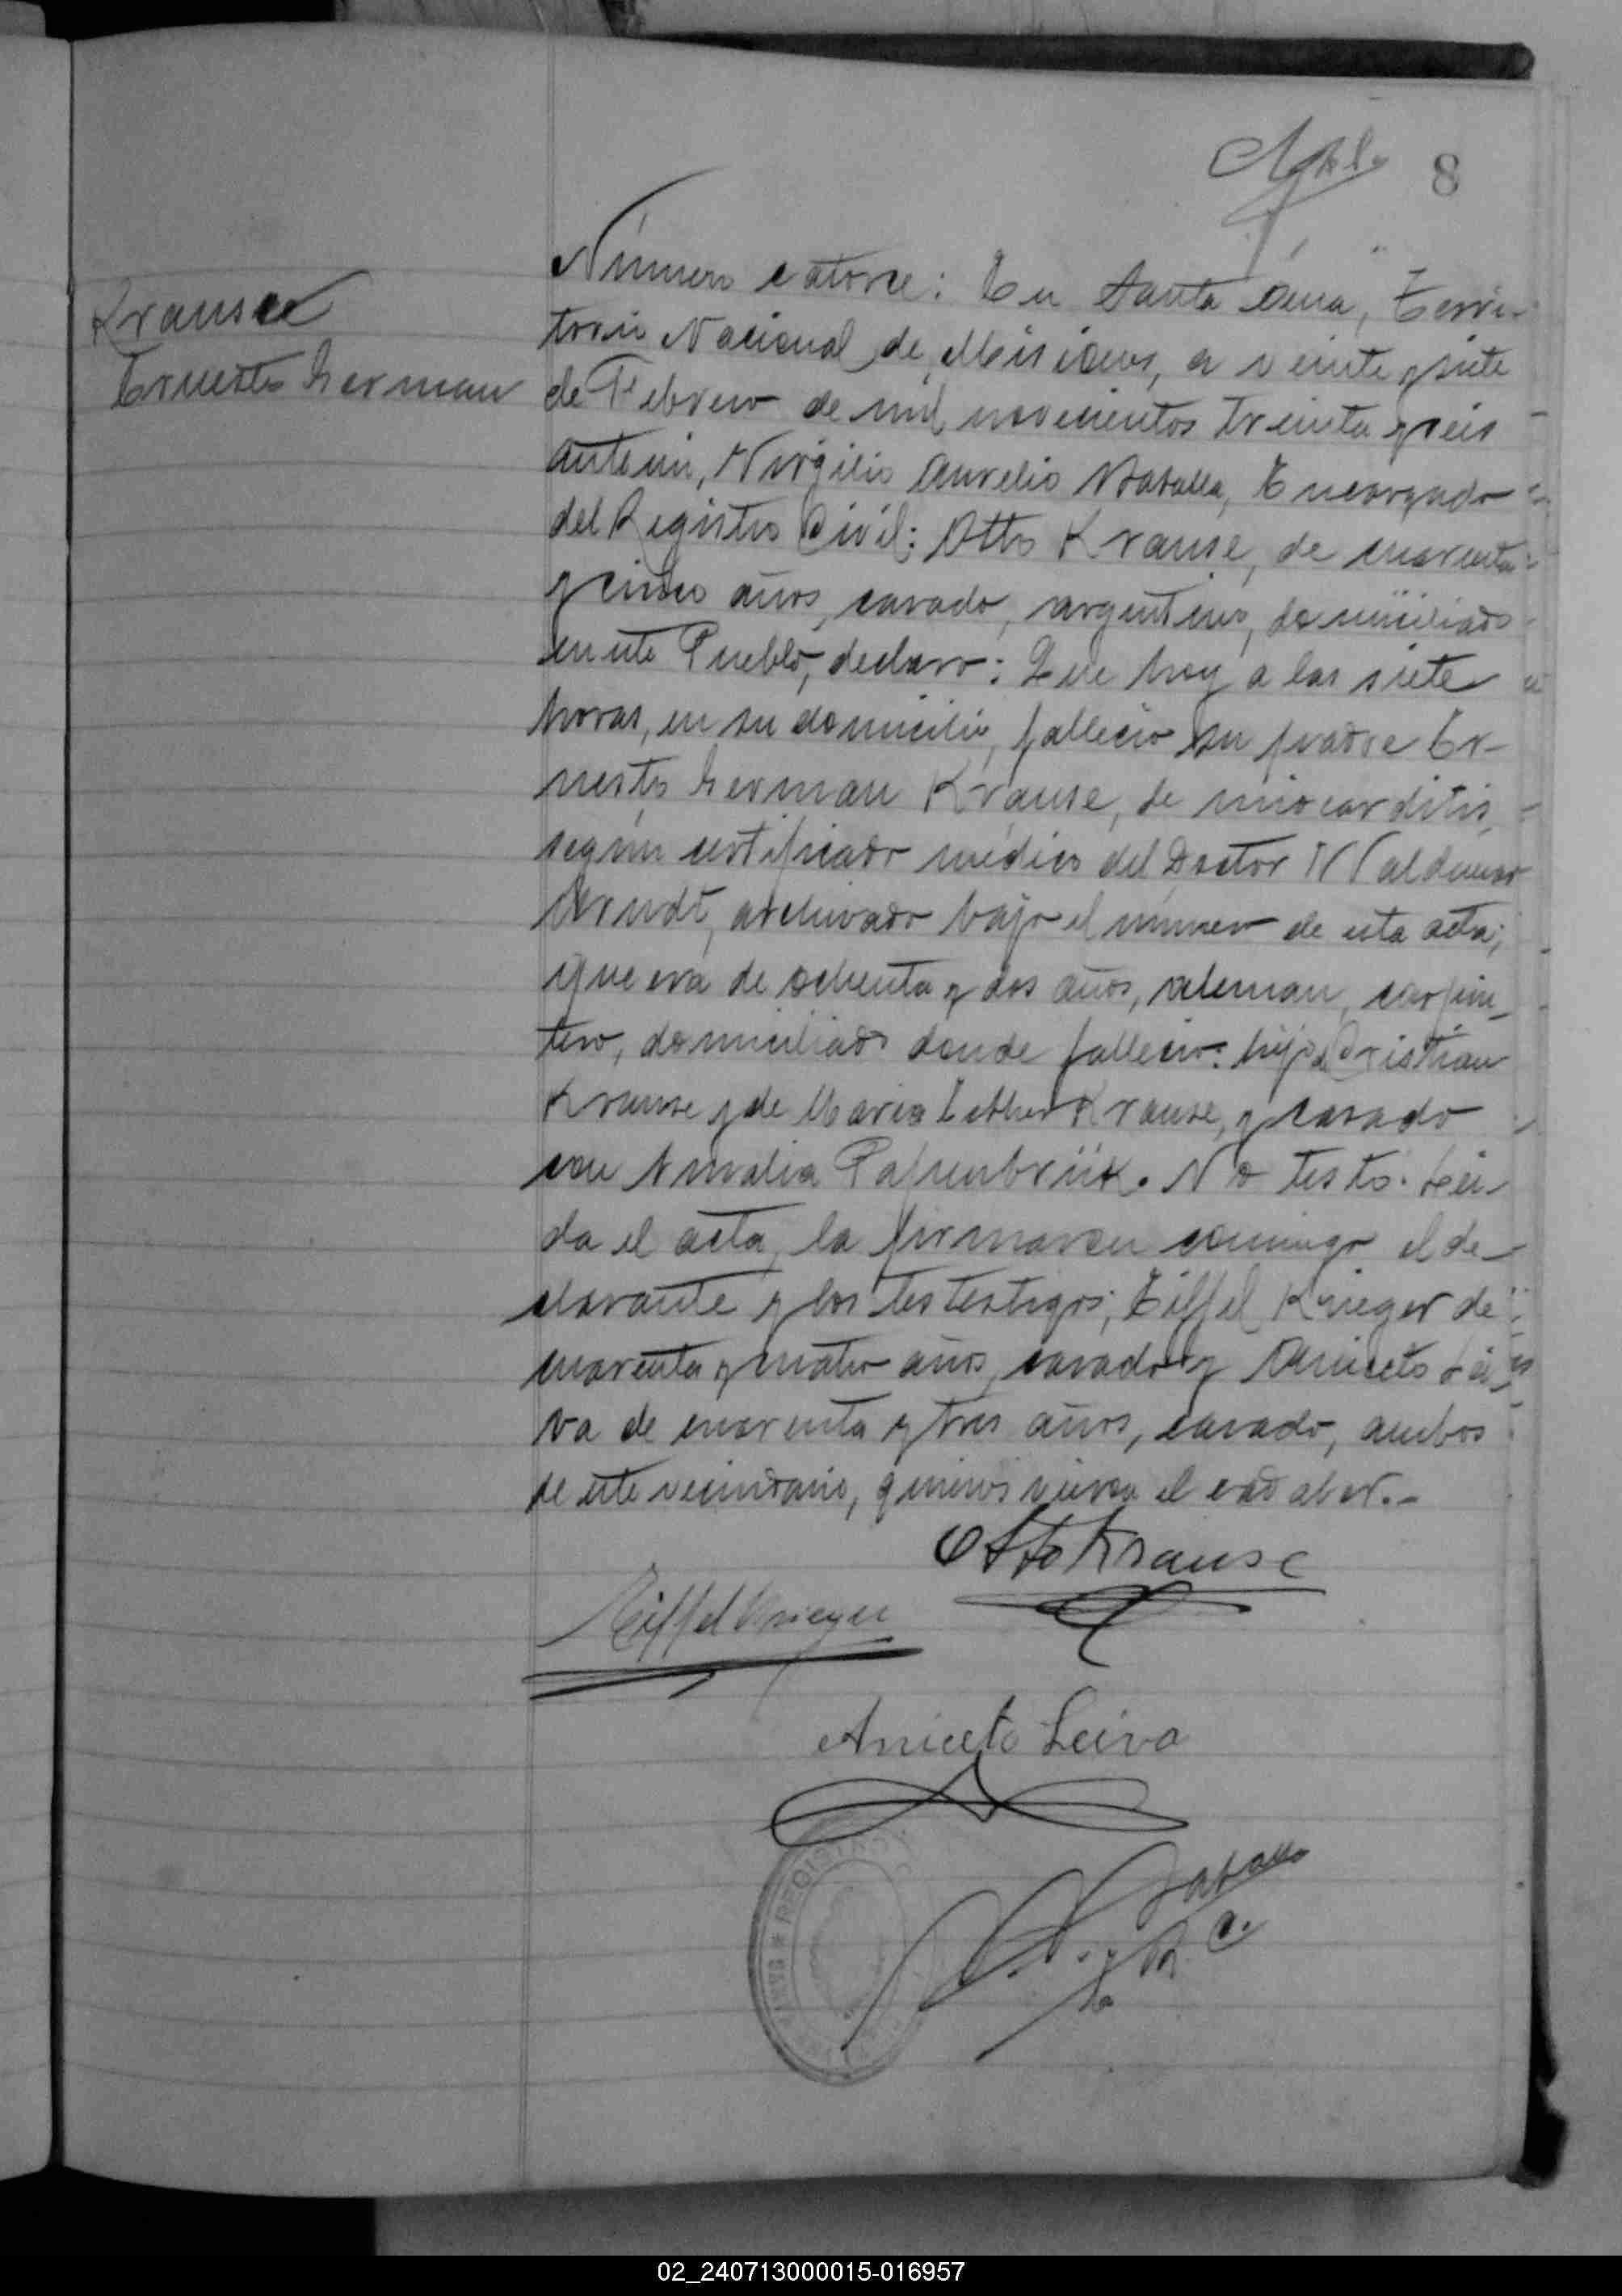 8
Krause
Ernesto German
Número catorce: En Santa Ana, Terri-
torio Nacional de Misiones, a veinte y siete
de Febrero de mil novecientos treinta y seis
ante mi, Virgilio Aurelio Zaballa, Encargado
del Registro Civil: Otto Krause, de cuarenta
y cinco años, casado, argentino, domiciliado
en este Pueblo, declaro: Que hoy a las siete
horas, en su domicilio, fallecio su padre Er-
nesto German Krause, de miocarditis,
según certificado médico del Doctor Waldemar
Arndt, archivado bajo el número de esta acta;
que era de ochenta y dos años, aleman, carpin-
tero, domiciliado donde fallecio: hijo de Cristian
Krause y de Maria Krause, y casado
con Amalia Papenbrük. No testó. Leí-
da el acta, la firmaron conmigo el de-
clarante y los testestigos; Eiffel Krieger de
cuarenta y cuatro años, casado y Aniceto Lei-
va de cuarenta y tres años, casado, ambos
de este vecindario, quienes vieron el cadaver.-
Otto Krause
Eiffel Krieger
Aniceto Leiva
REGISTRO
Zaballa
R. C.
02_240713000015-016957